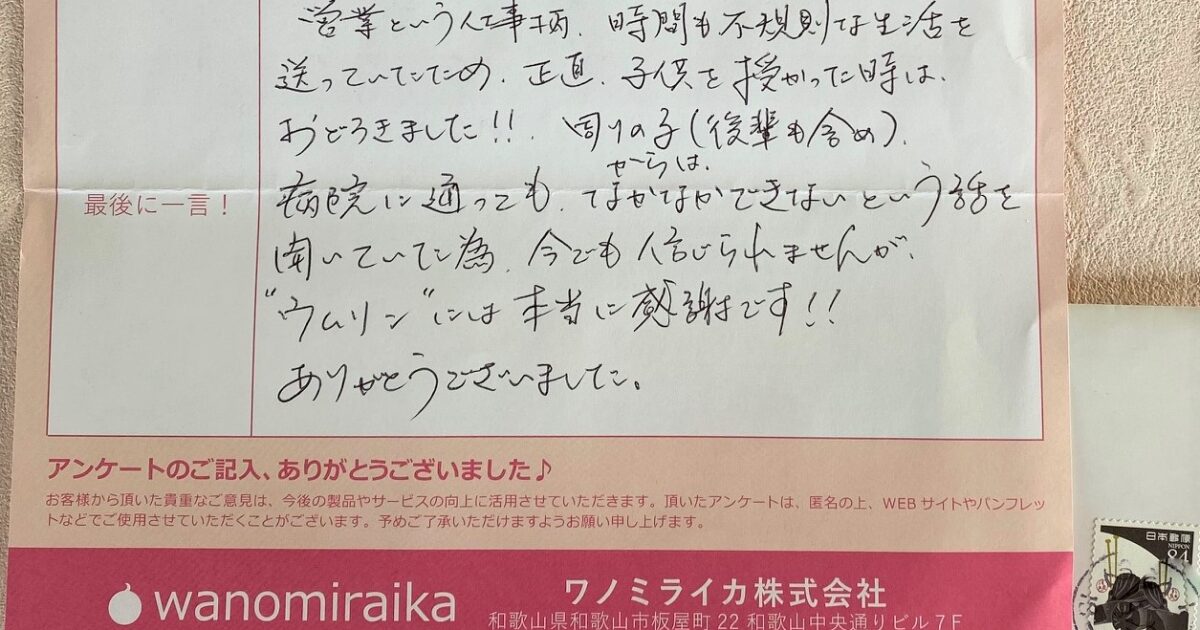 営業という仕事柄、時間も不規則な生活を
送っていたため、正直、子供を授かった時は、
おどろきました!!、周りの子(後輩も含め)、
からは、
病院に通っても、なかなかできないという話を
聞いていた為、今でも信じられませんが、
"ウムリン"には本当に感謝です!!
ありがとうございました。
最後に一言!
アンケートのご記入、ありがとうございました♪
お客様から頂いた貴重なご意見は、今後の製品やサービスの向上に活用させていただきます。頂いたアンケートは、匿名の上、WEBサイトやパンフレッ
トなどでご使用させていただくことがございます。予めご了承いただけますようお願い申し上げます。
wanomiraika
ワノミライカ株式会社
和歌山県和歌山市板屋町22 和歌山中央通りビル7F
日本郵便
NIPPON
84